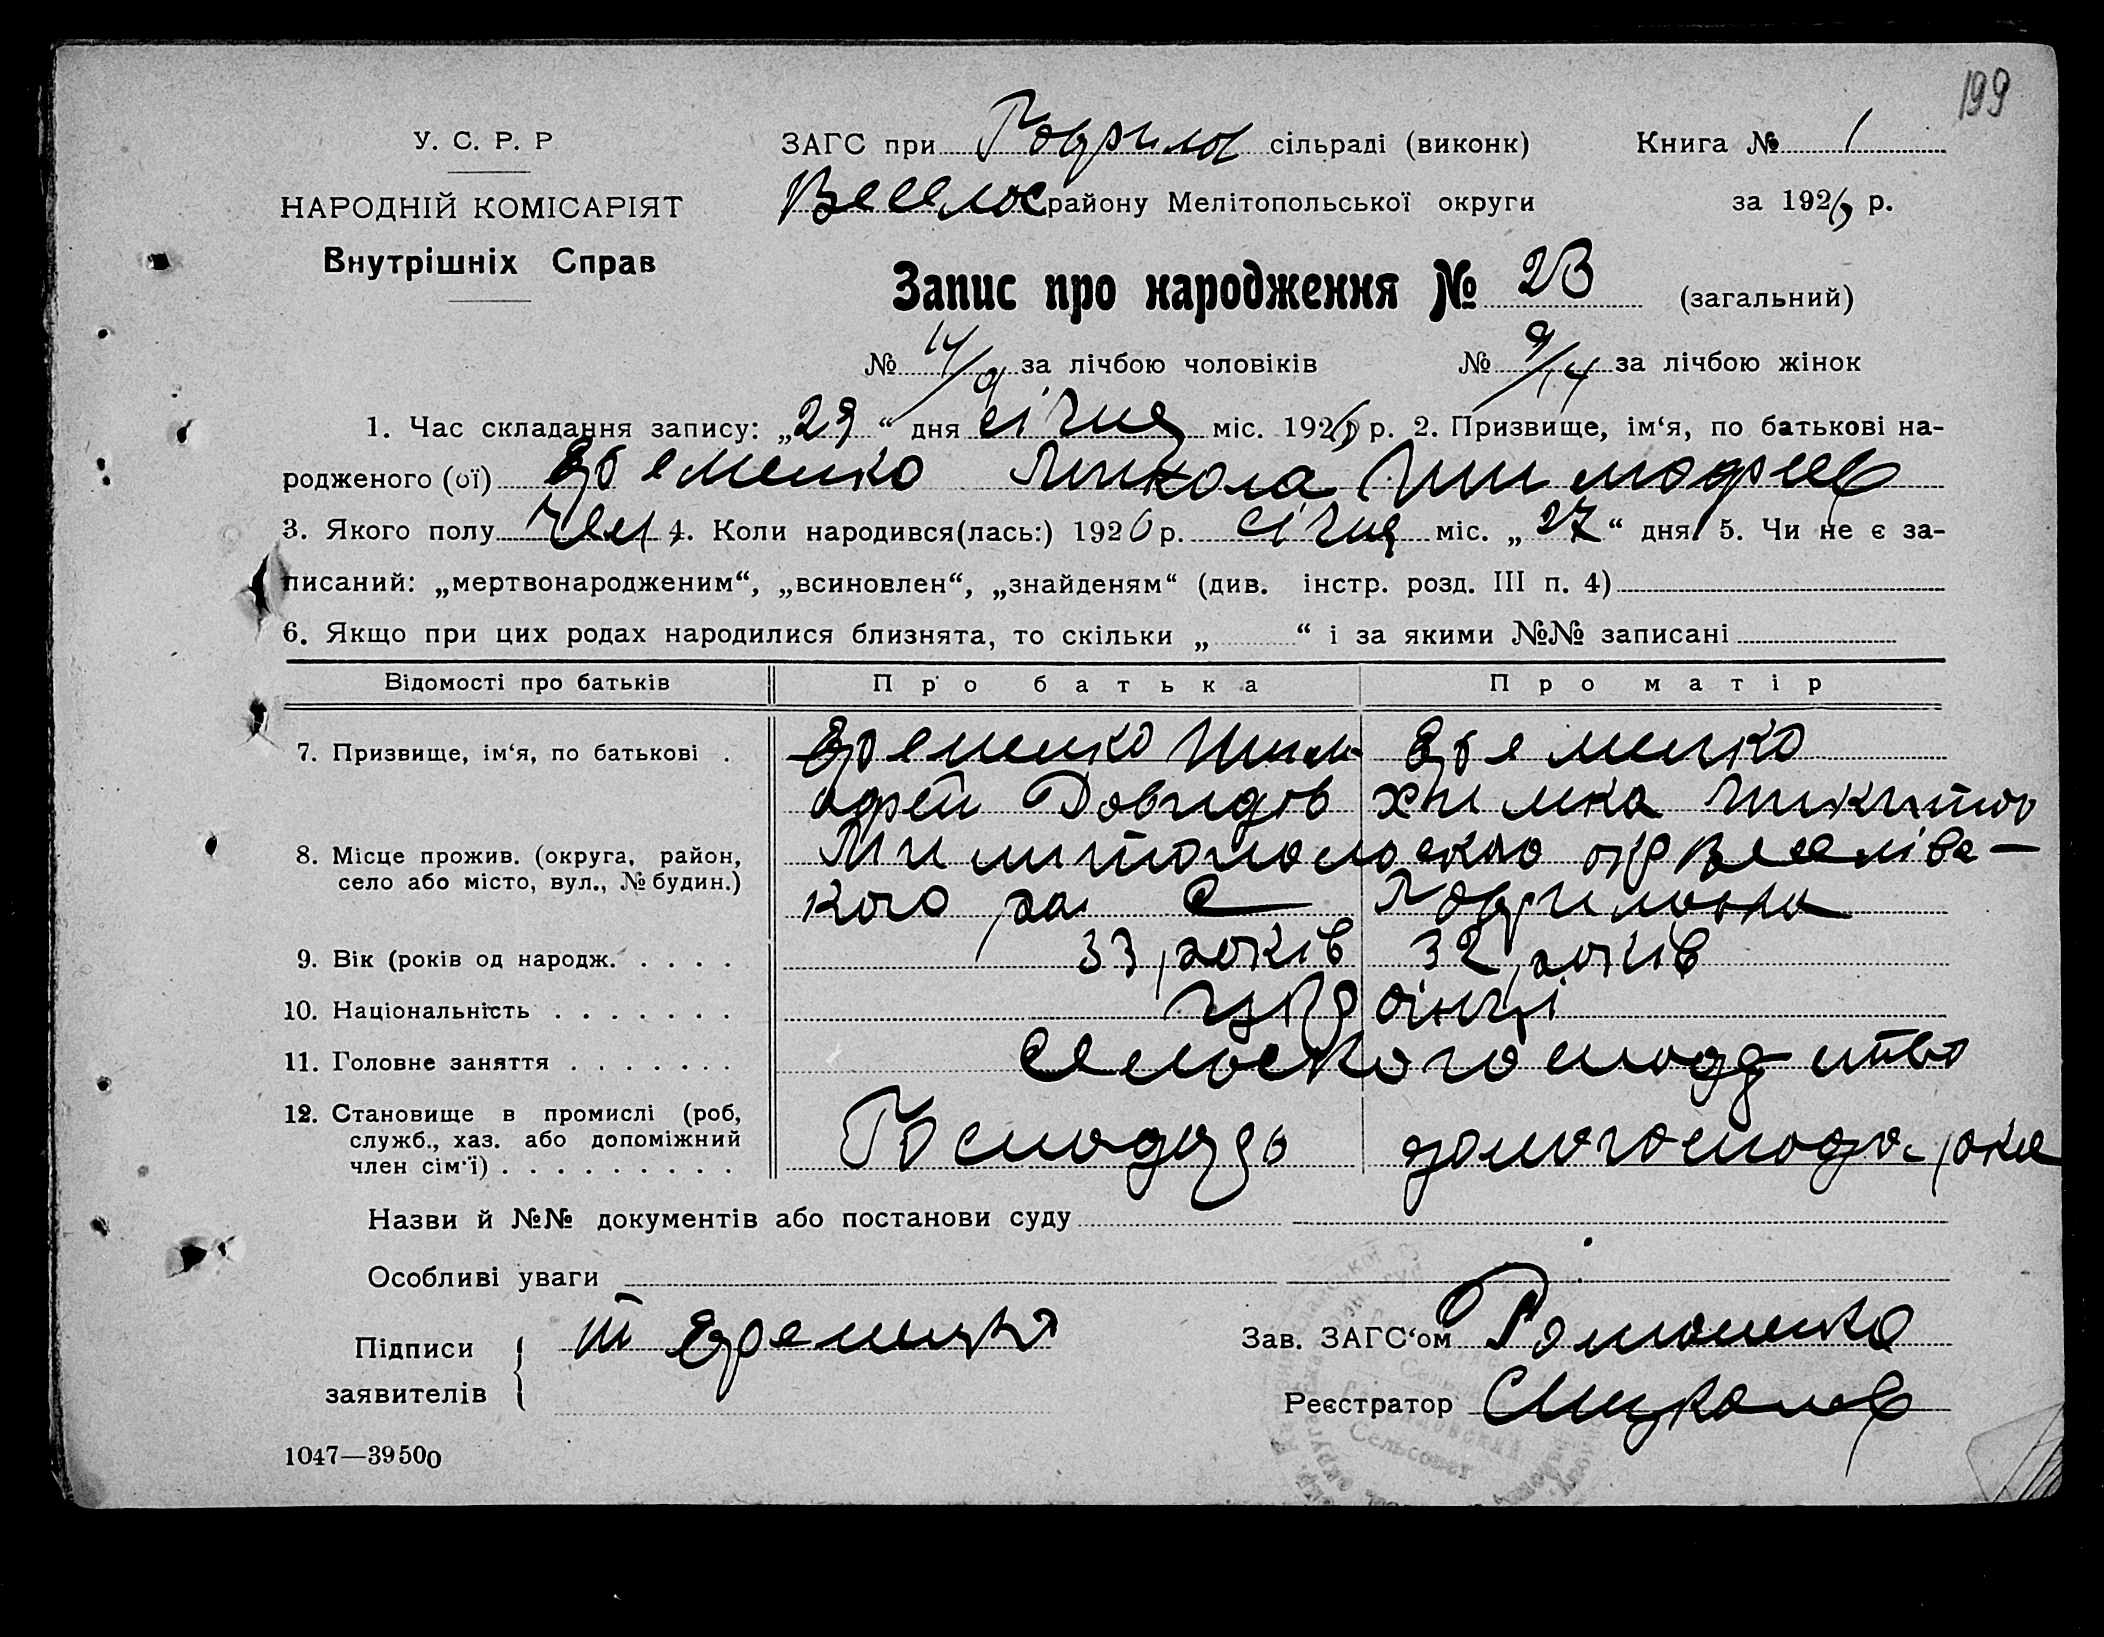 199
У. С. Р. Р
НАРОДНІЙ КОМІСАРІЯТ
Внутрішніх Справ
ЗАГС при Гаврилов сільраді (виконк)
Веселос району Мелітопольської округи
Книга № 1
за 1926 р.
Запис про народження № 23 (загальний)
№ 14/9 за лічбою чоловіків № 9/14 за лічбою жінок
1. Час складання запису: „29“ дня січня міс. 1926 р. 2. Призвище, ім‘я, по батькові на-
родженого (ої) Еременко Микола Тимофеев
3. Якого полу Чол 4. Коли народився(лась:) 1926 р. січня міс. „27“ дня 5. Чи не є за-
писаний: „мертвонародженим“, „всиновлен“, „знайденям“ (див. інстр. розд. III п. 4)
6. Якщо при цих родах народилися близнята, то скільки „ “ і за якими №№ записані
Відомості про батьків Про батька Про матір
7. Призвище, ім‘я, по батькові . Еременко Тим Еременко
офей Давидов Химка Микитов
8. Місце прожив. (округа, район, Милитопольского окр Веселівс-
село або місто, вул., № будин.) кого ра с Гавриловки
9. Вік (років од народж. . . . . 33 років 32 років
10. Національність . . . . . . . Українці
11. Головне заняття . . . . . . . Сельске
12. Становище в промислі (роб, Господарь
служб., хаз. або допоміжний
член сім‘ї) . . . . . . . . .
Назви й №№ документів або постанови суду
Особливі уваги
Підписи Т Еременко
заявителів
Зав. ЗАГС‘ом Романенко
Реєстратор
Сельсовет
1047—39500